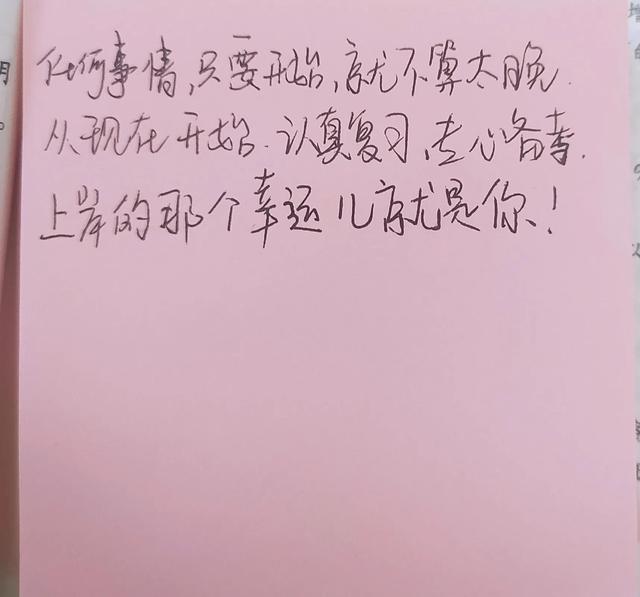 任何事情,只要开始,就不算太晚.
从现在开始.认真复习,专心备考.
上岸的那个幸运儿就是你!